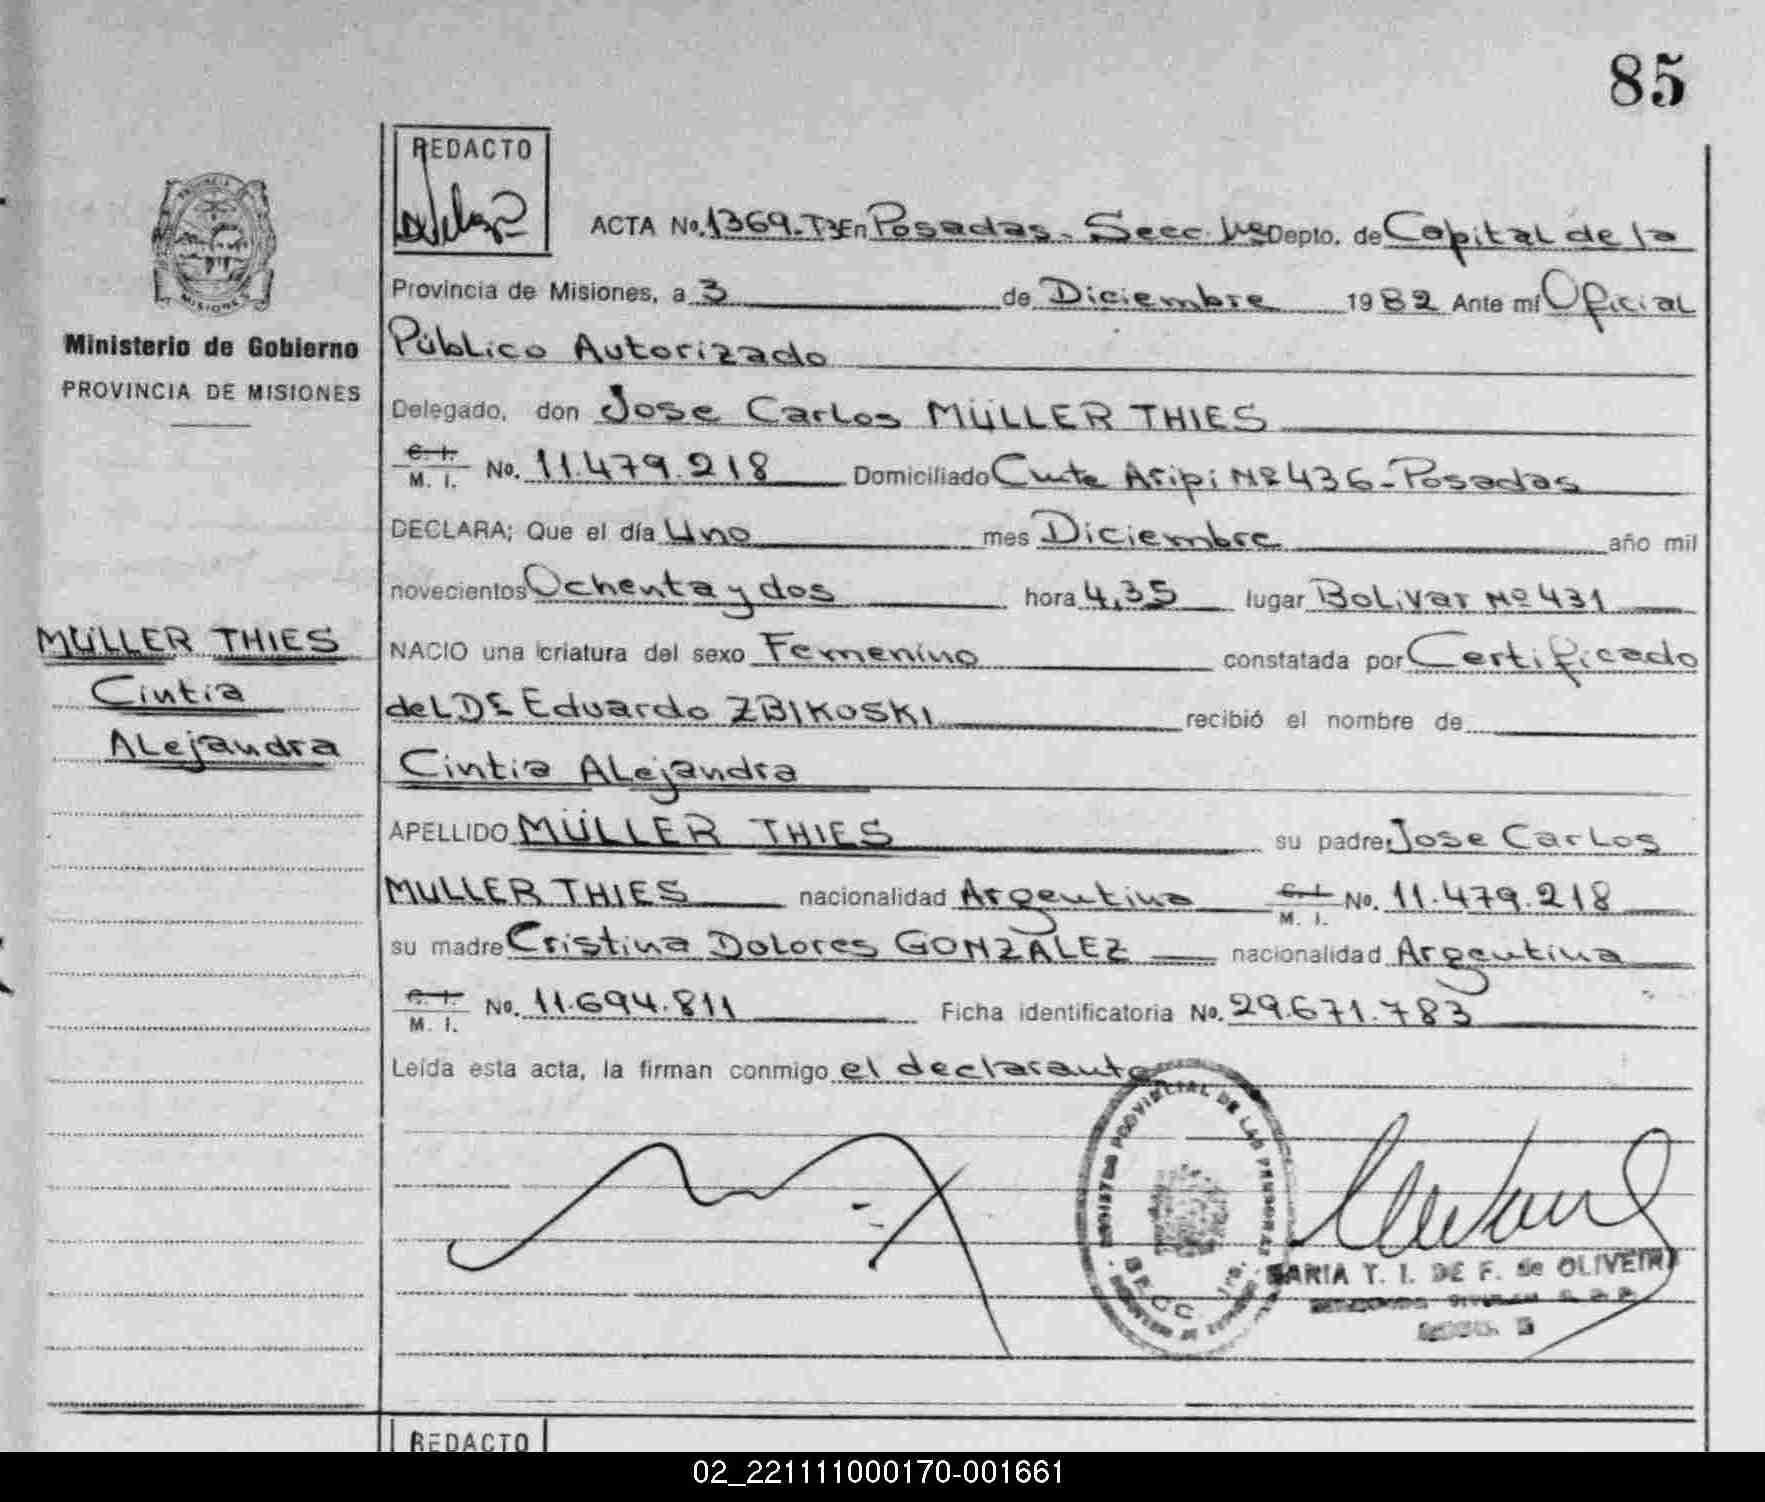 85
REDACTO
ACTA No. 1369-T3 En Posadas - Secc. Depto. de Capital de la
Provincia de Misiones, a 3 de Diciembre 1982 Ante mí Oficial
Público Autorizado
Delegado, don Jose Carlos MÜLLER THIES
C. I.
M. I. No. 11.479.218 Domiciliado Cmte Asipi Nº 436 - Posadas
DECLARA; Que el día Uno mes Diciembre año mil
novecientos Ochenta y dos hora 4,35 lugar Bolivar Nº 431
NACIO una criatura del sexo Femenino constatada por Certificado
del Dr Eduardo ZBIKOSKI recibió el nombre de
Cintia Alejandra
APELLIDO MÜLLER THIES su padre Jose Carlos
MULLER THIES nacionalidad Argentina C. I. M. I. No. 11.479.218
su madre Cristina Dolores GONZALEZ nacionalidad Argentina
C. I.
M. I. No. 11.694.811 Ficha identificatoria No. 29.671.783
Leída esta acta, la firman conmigo el declarante
PROVINCIA
MISIONES
Ministerio de Gobierno
PROVINCIA DE MISIONES
MÜLLER THIES
Cintia
Alejandra
REGISTRO PROVINCIAL DE LAS PERSONAS
SECC. 1ra.
MARIA T. I. DE F. de OLIVEIRA
REDACTO
02_221111000170-001661